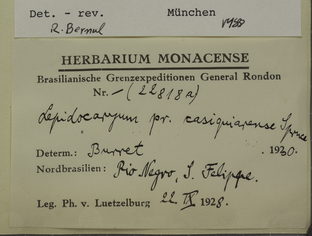 Det. - rev. München
R. Bernal 1988
HERBARIUM MONACENSE
Brasilianische Grenzexpeditionen General Rondon
Nr. - (22818a)
Lepidocaryum pr. casiquiarense Spruce
Determ.: Burret . 1930.
Nordbrasilien: Rio Negro, S. Felippe.
Leg. Ph. v. Luetzelburg 22 IX 1928.